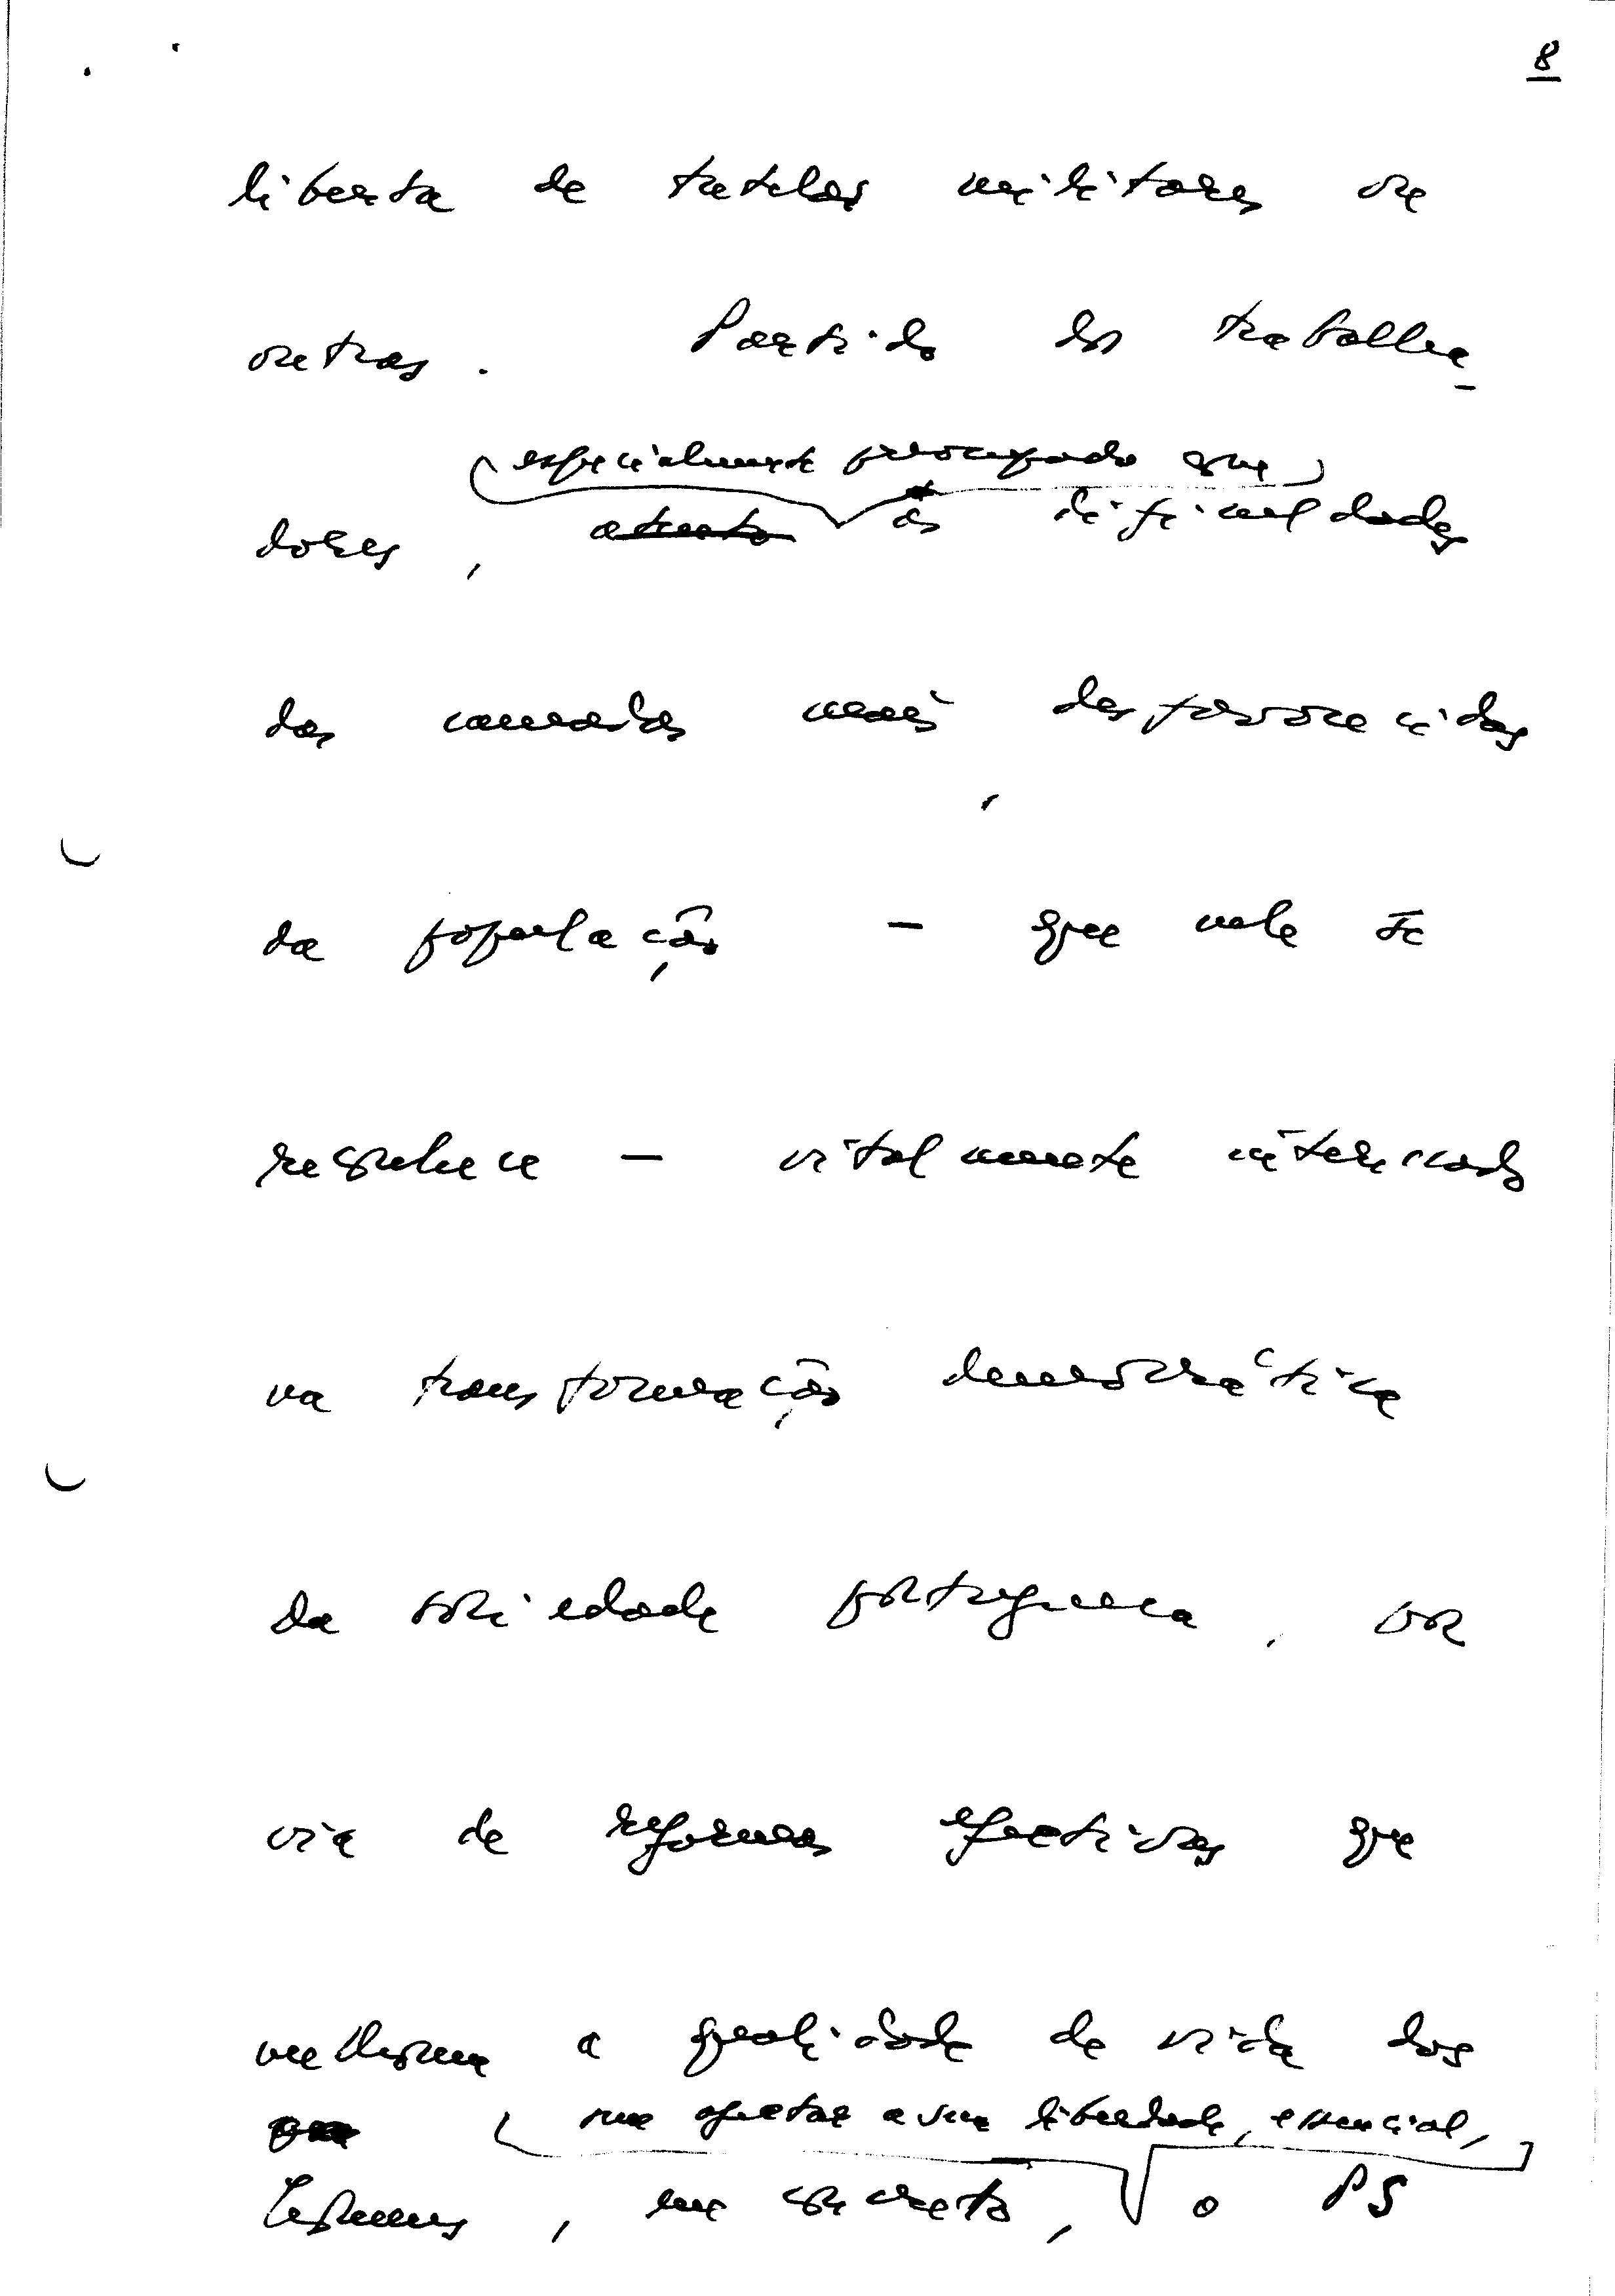 8
liberta de tutelas militares ou
outras. Partido dos trabalha-
especialmente preocupado com
dores, atento as dificuldades
das camadas mais desfavorecidas
da população – que nele se
reconhece – vitalmente interessado
na transformação democrática
da sociedade portuguesa, por
via de reformas efectivas que
melhorem a qualidade de vida dos
sem afectar a sua liberdade, essencial,
homens, em concreto, o PS